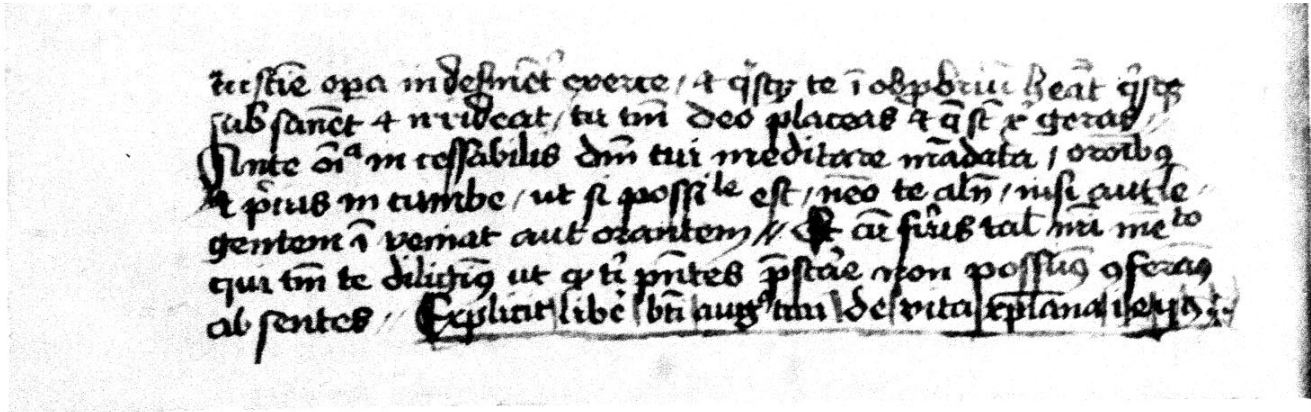 iusticie oꝑa indesinēt̉ exerce / ⁊ q̉sqꝫ te ī obprobriū heāt q̉sqꝫ
subsanēt ⁊ irrideat / tu tm̄ deo placeas ⁊ q̄ st̄ xp̄i geras //
Ante oīᵃ incessabilit̉ dn̄i tui meditare mādata / orōībꝰ
⁊ p̄cius incumbe / ut si possiˡᵉ est / nēo te aln̄ / nisi aut le
gentem īveniat aut orantem // Et cū fu̓is tal nr̄i mēᵗᵒ
qui tm̄ te diligimꝰ ut qͦ tī pn̄tes p̄star̄e non possumꝰ ꝯferamꝰ
absentes // Explicit libē bt̄i augᵒtini de vita xp̄iana